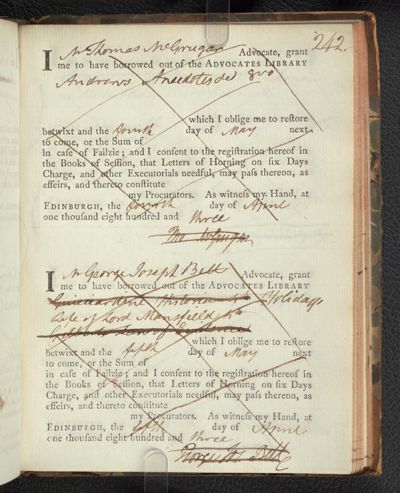 242.
I Mr Thomas McGrugar Advocate, grant
me to have borrowed out of the ADVOCATES LIBRARY
Andrews Anecdotes &c 8vo
which I oblige me to reſtore
betwixt and the fourth day of May next
to come, or the Sum of
in caſe of Failzie; and I conſent to the regiſtration hereof in
the Books of Seſſion, that Letters of Horning on ſix Days
Charge, and other Executorials needful, may paſs thereon, as
effeirs, and thereto conſtitute
my Procurators. As witneſs my Hand, at
EDINBURGH, the fourth day of April
one thouſand eight hundred and three
Tho McGrugar
I Mr George Joseph Bell Advocate, grant
me to have borrowed out of the ADVOCATES LIBRARY
Historia Holidays
Life of Lord Mansfield
which I oblige me to reſtore
betwixt and the fifth day of May next
to come, or the Sum of
in caſe of Failzie; and I conſent to the regiſtration hereof in
the Books of Seſſion, that Letters of Horning on ſix Days
Charge, and other Executorials needful, may paſs thereon, as
effeirs, and thereto conſtitute
my Procurators. As witneſs my Hand, at
EDINBURGH, the fifth day of April
one thouſand eight hundred and three
George Jos Bell